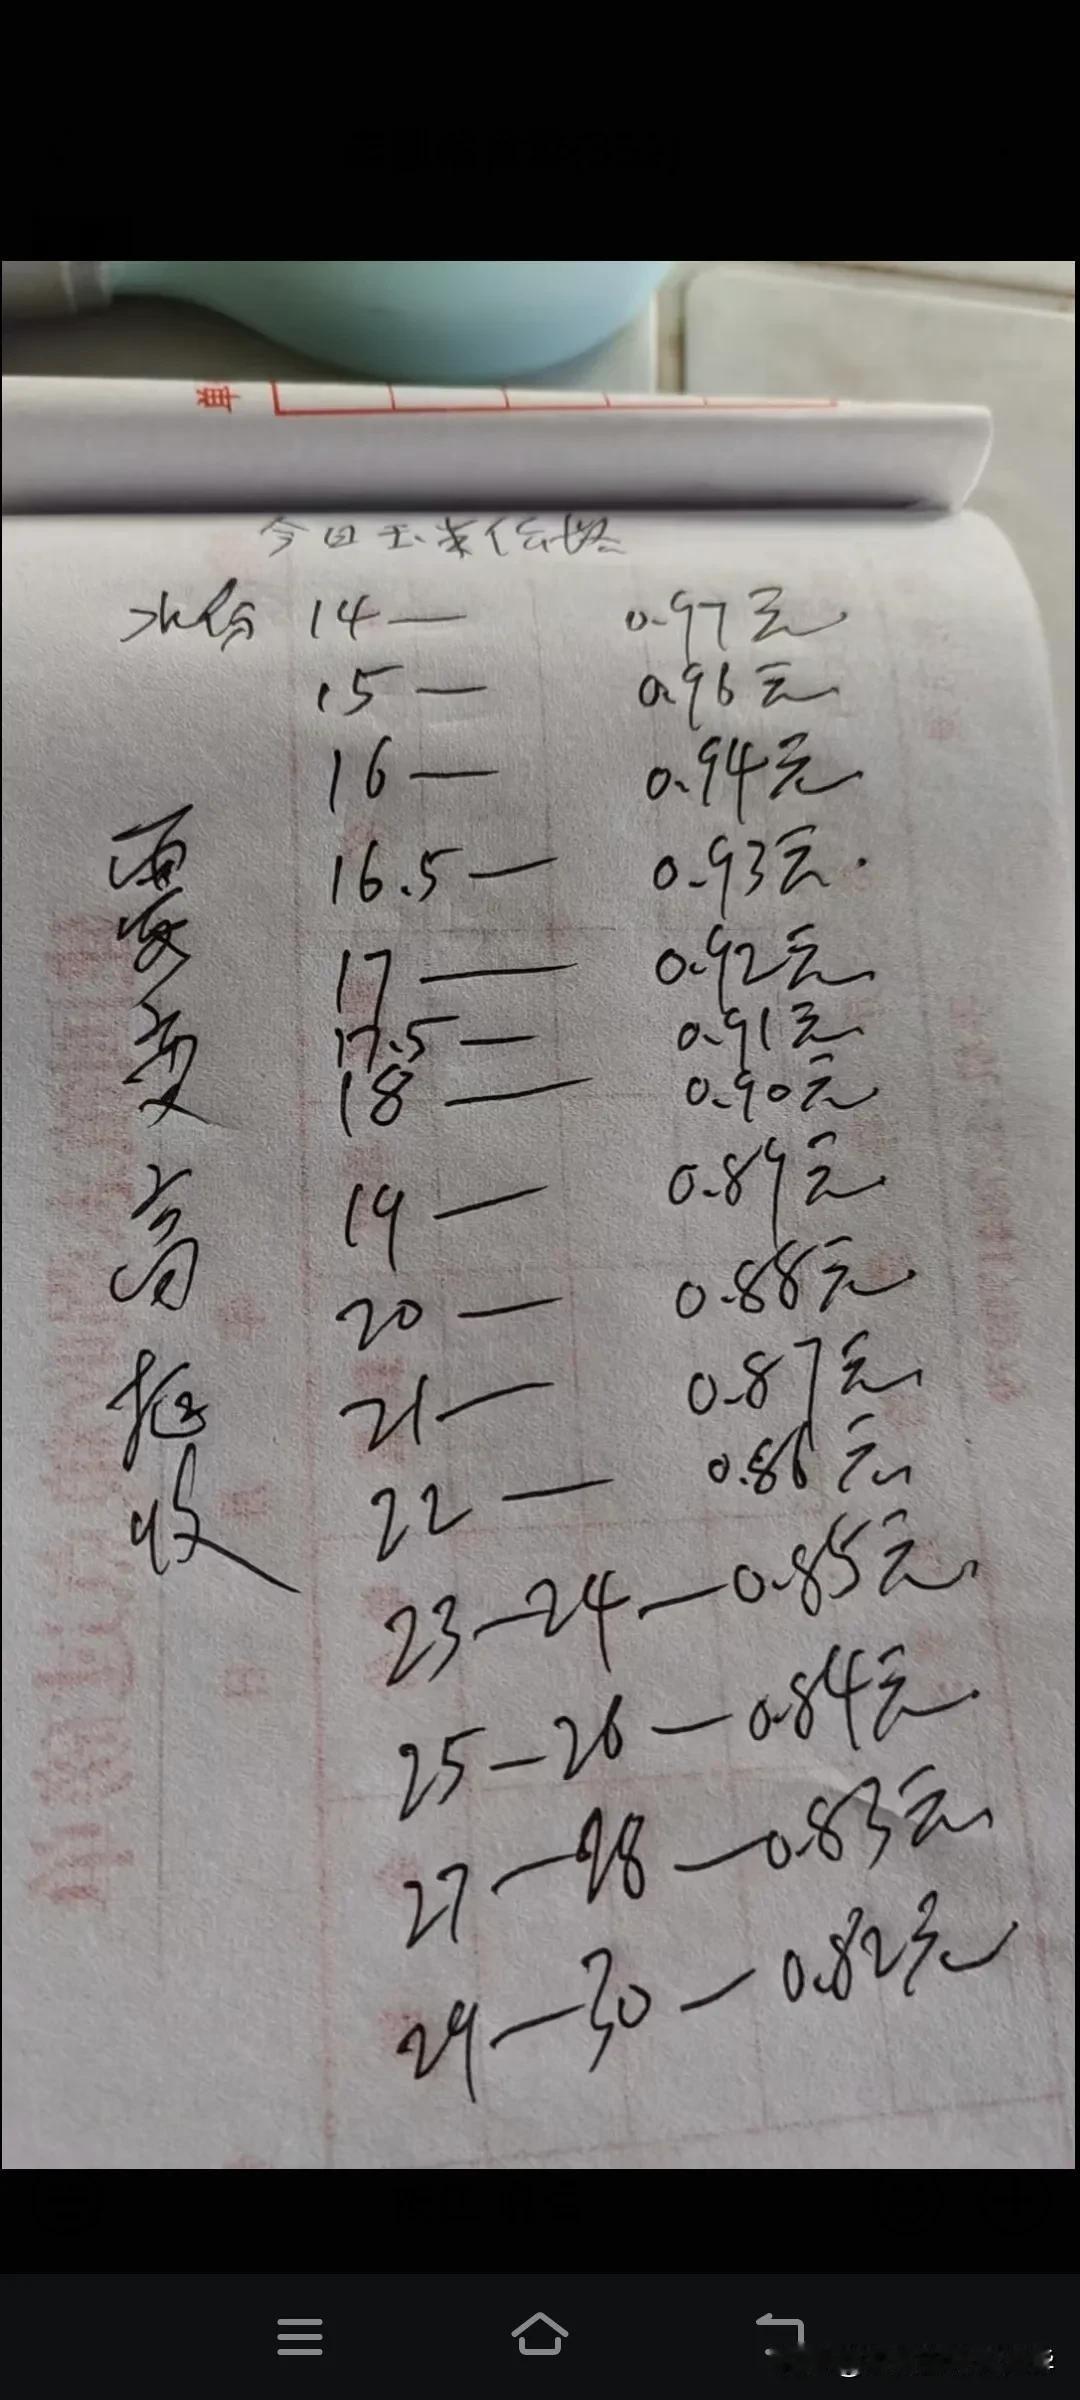 单
今日玉米价格
水份 14 — 0.97元
15 — 0.96元
16 — 0.94元
16.5 — 0.93元
17 — 0.92元
17.5 — 0.91元
18 — 0.90元
19 — 0.89元
20 — 0.88元
21 — 0.87元
22 — 0.86元
23 — 24 — 0.85元
25 — 26 — 0.84元
27 — 28 — 0.83元
29 — 30 — 0.82元
要
变
高
收